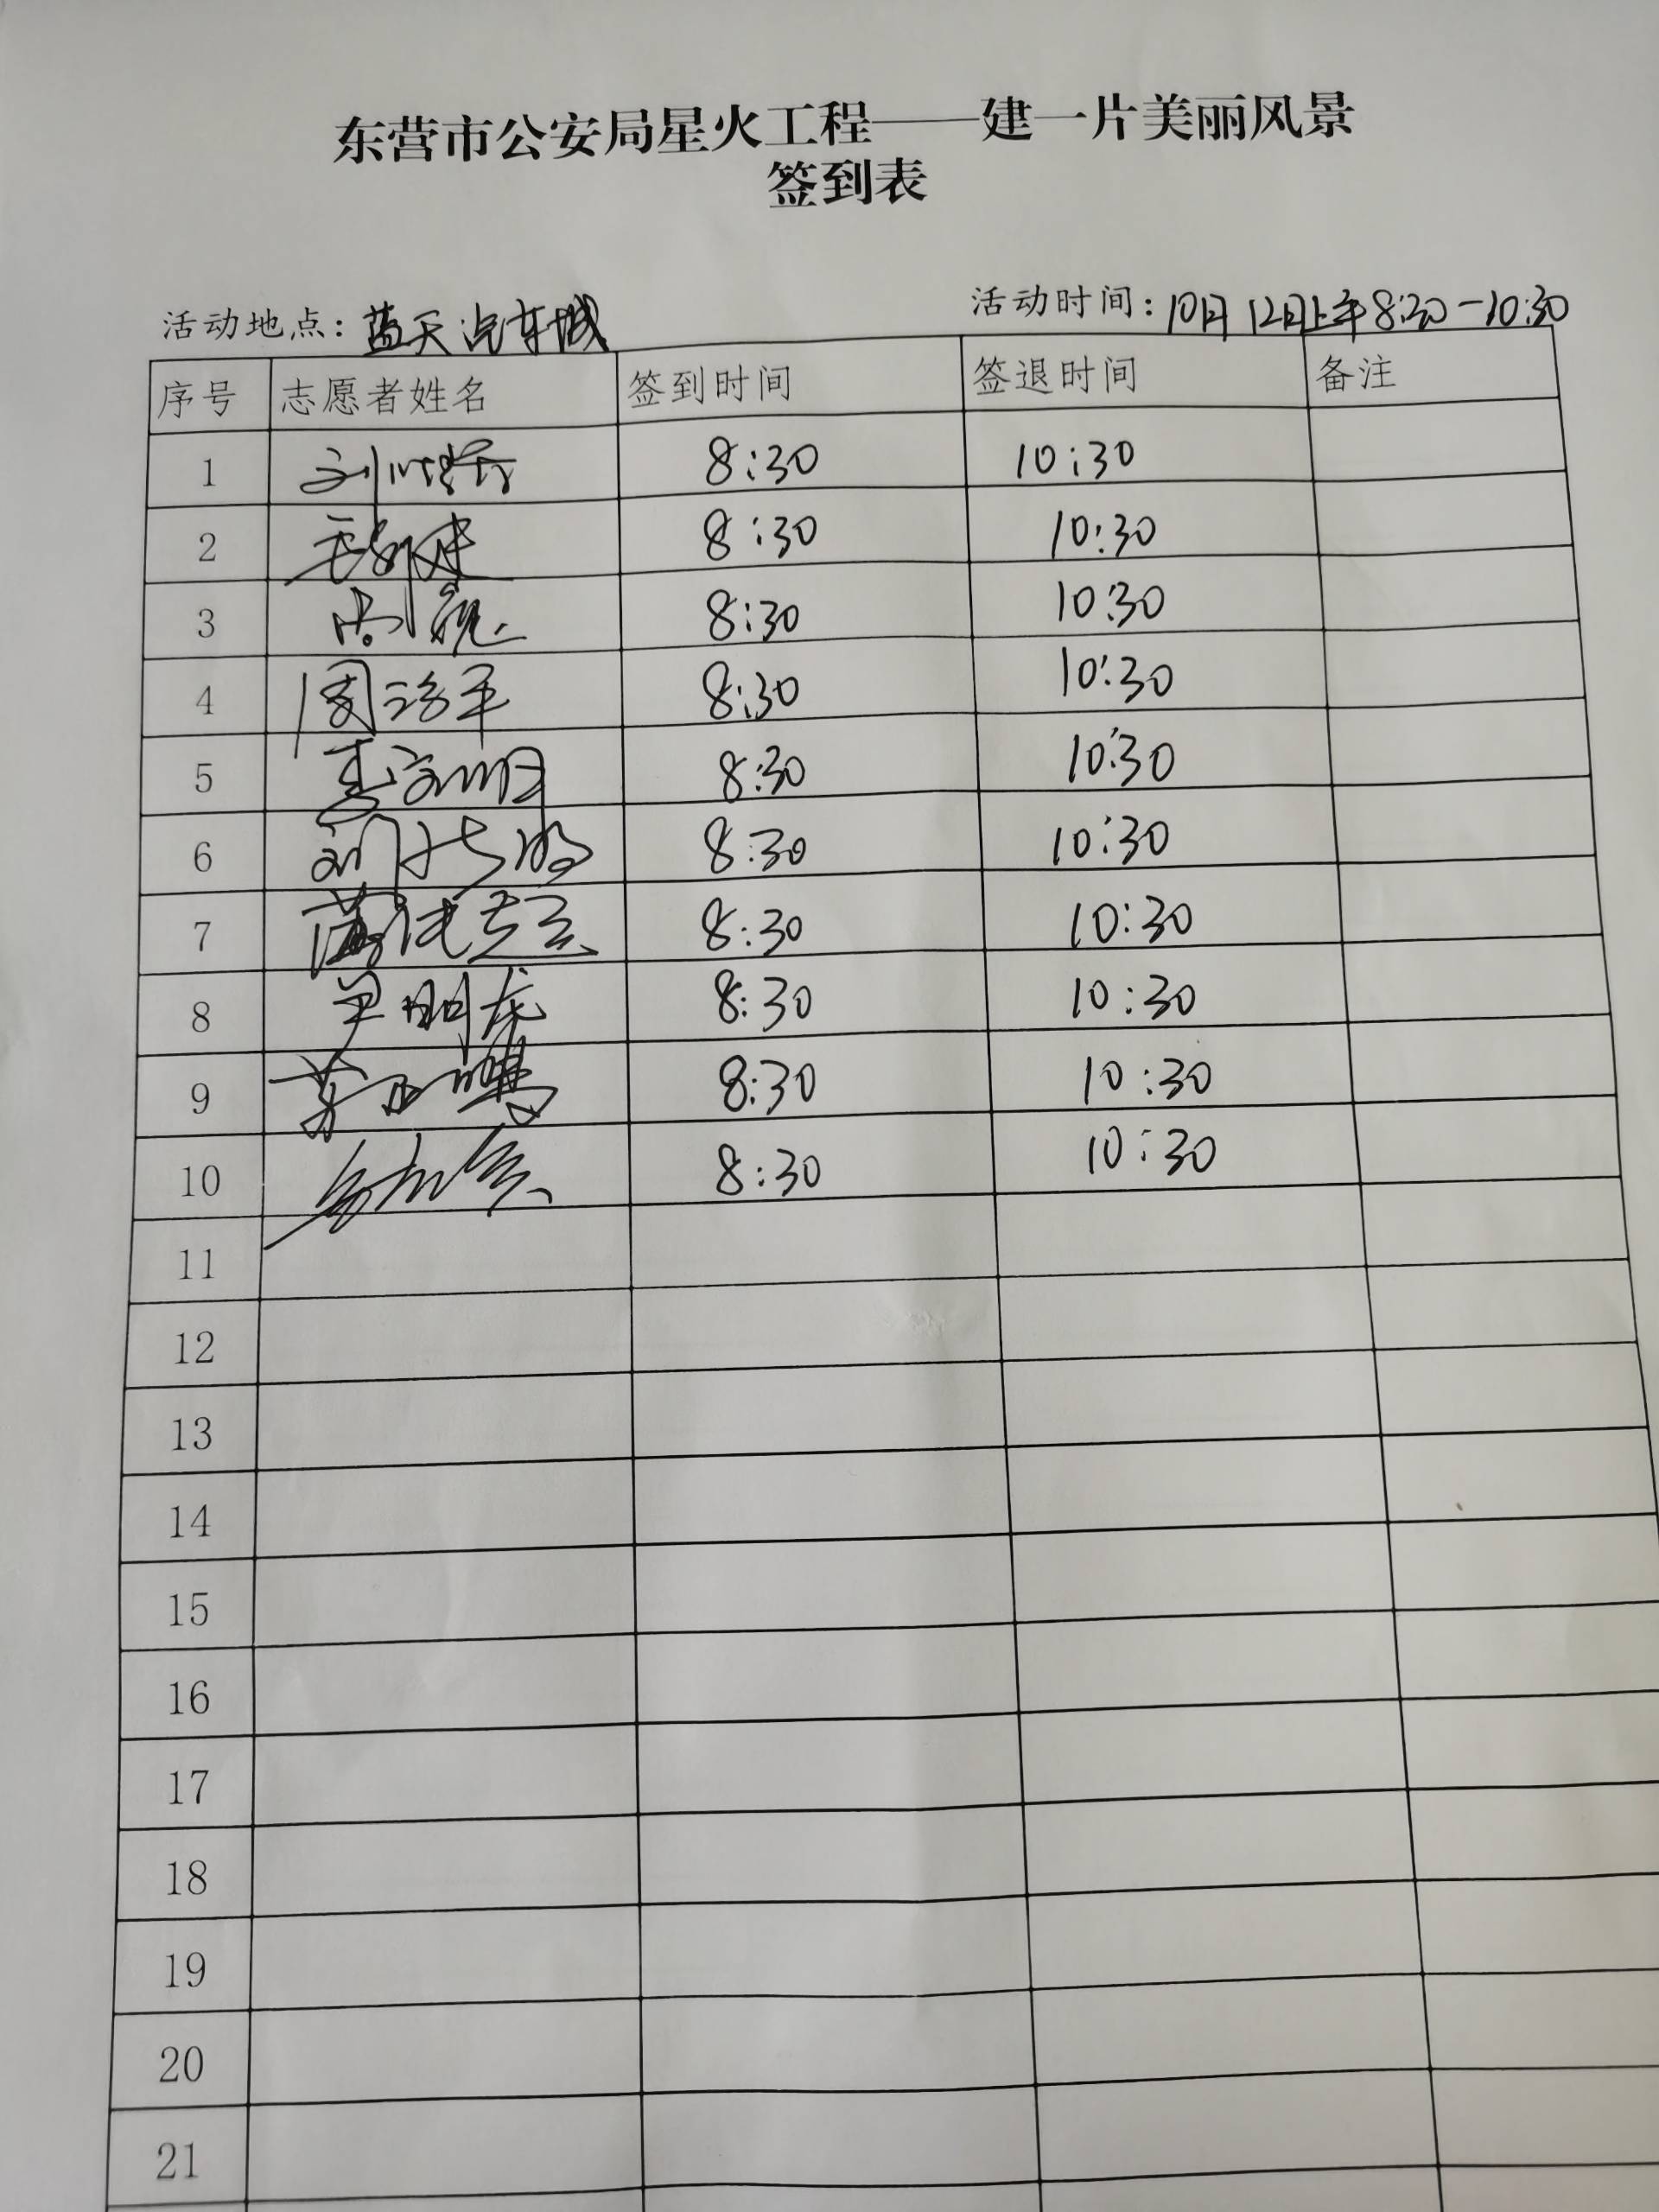 东营市公安局星火工程——建一片美丽风景
签到表
活动地点：蓝天汽车城 活动时间：10月12日上午8:30-10:30
序号 志愿者姓名 签到时间 签退时间 备注
1 8:30 10:30
2 8:30 10:30
3 8:30 10:30
4 8:30 10:30
5 8:30 10:30
6 8:30 10:30
7 8:30 10:30
8 尹明龙 8:30 10:30
9 8:30 10:30
10 8:30 10:30
11
12
13
14
15
16
17
18
19
20
21